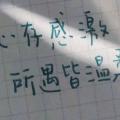 心存感激
所遇皆温柔